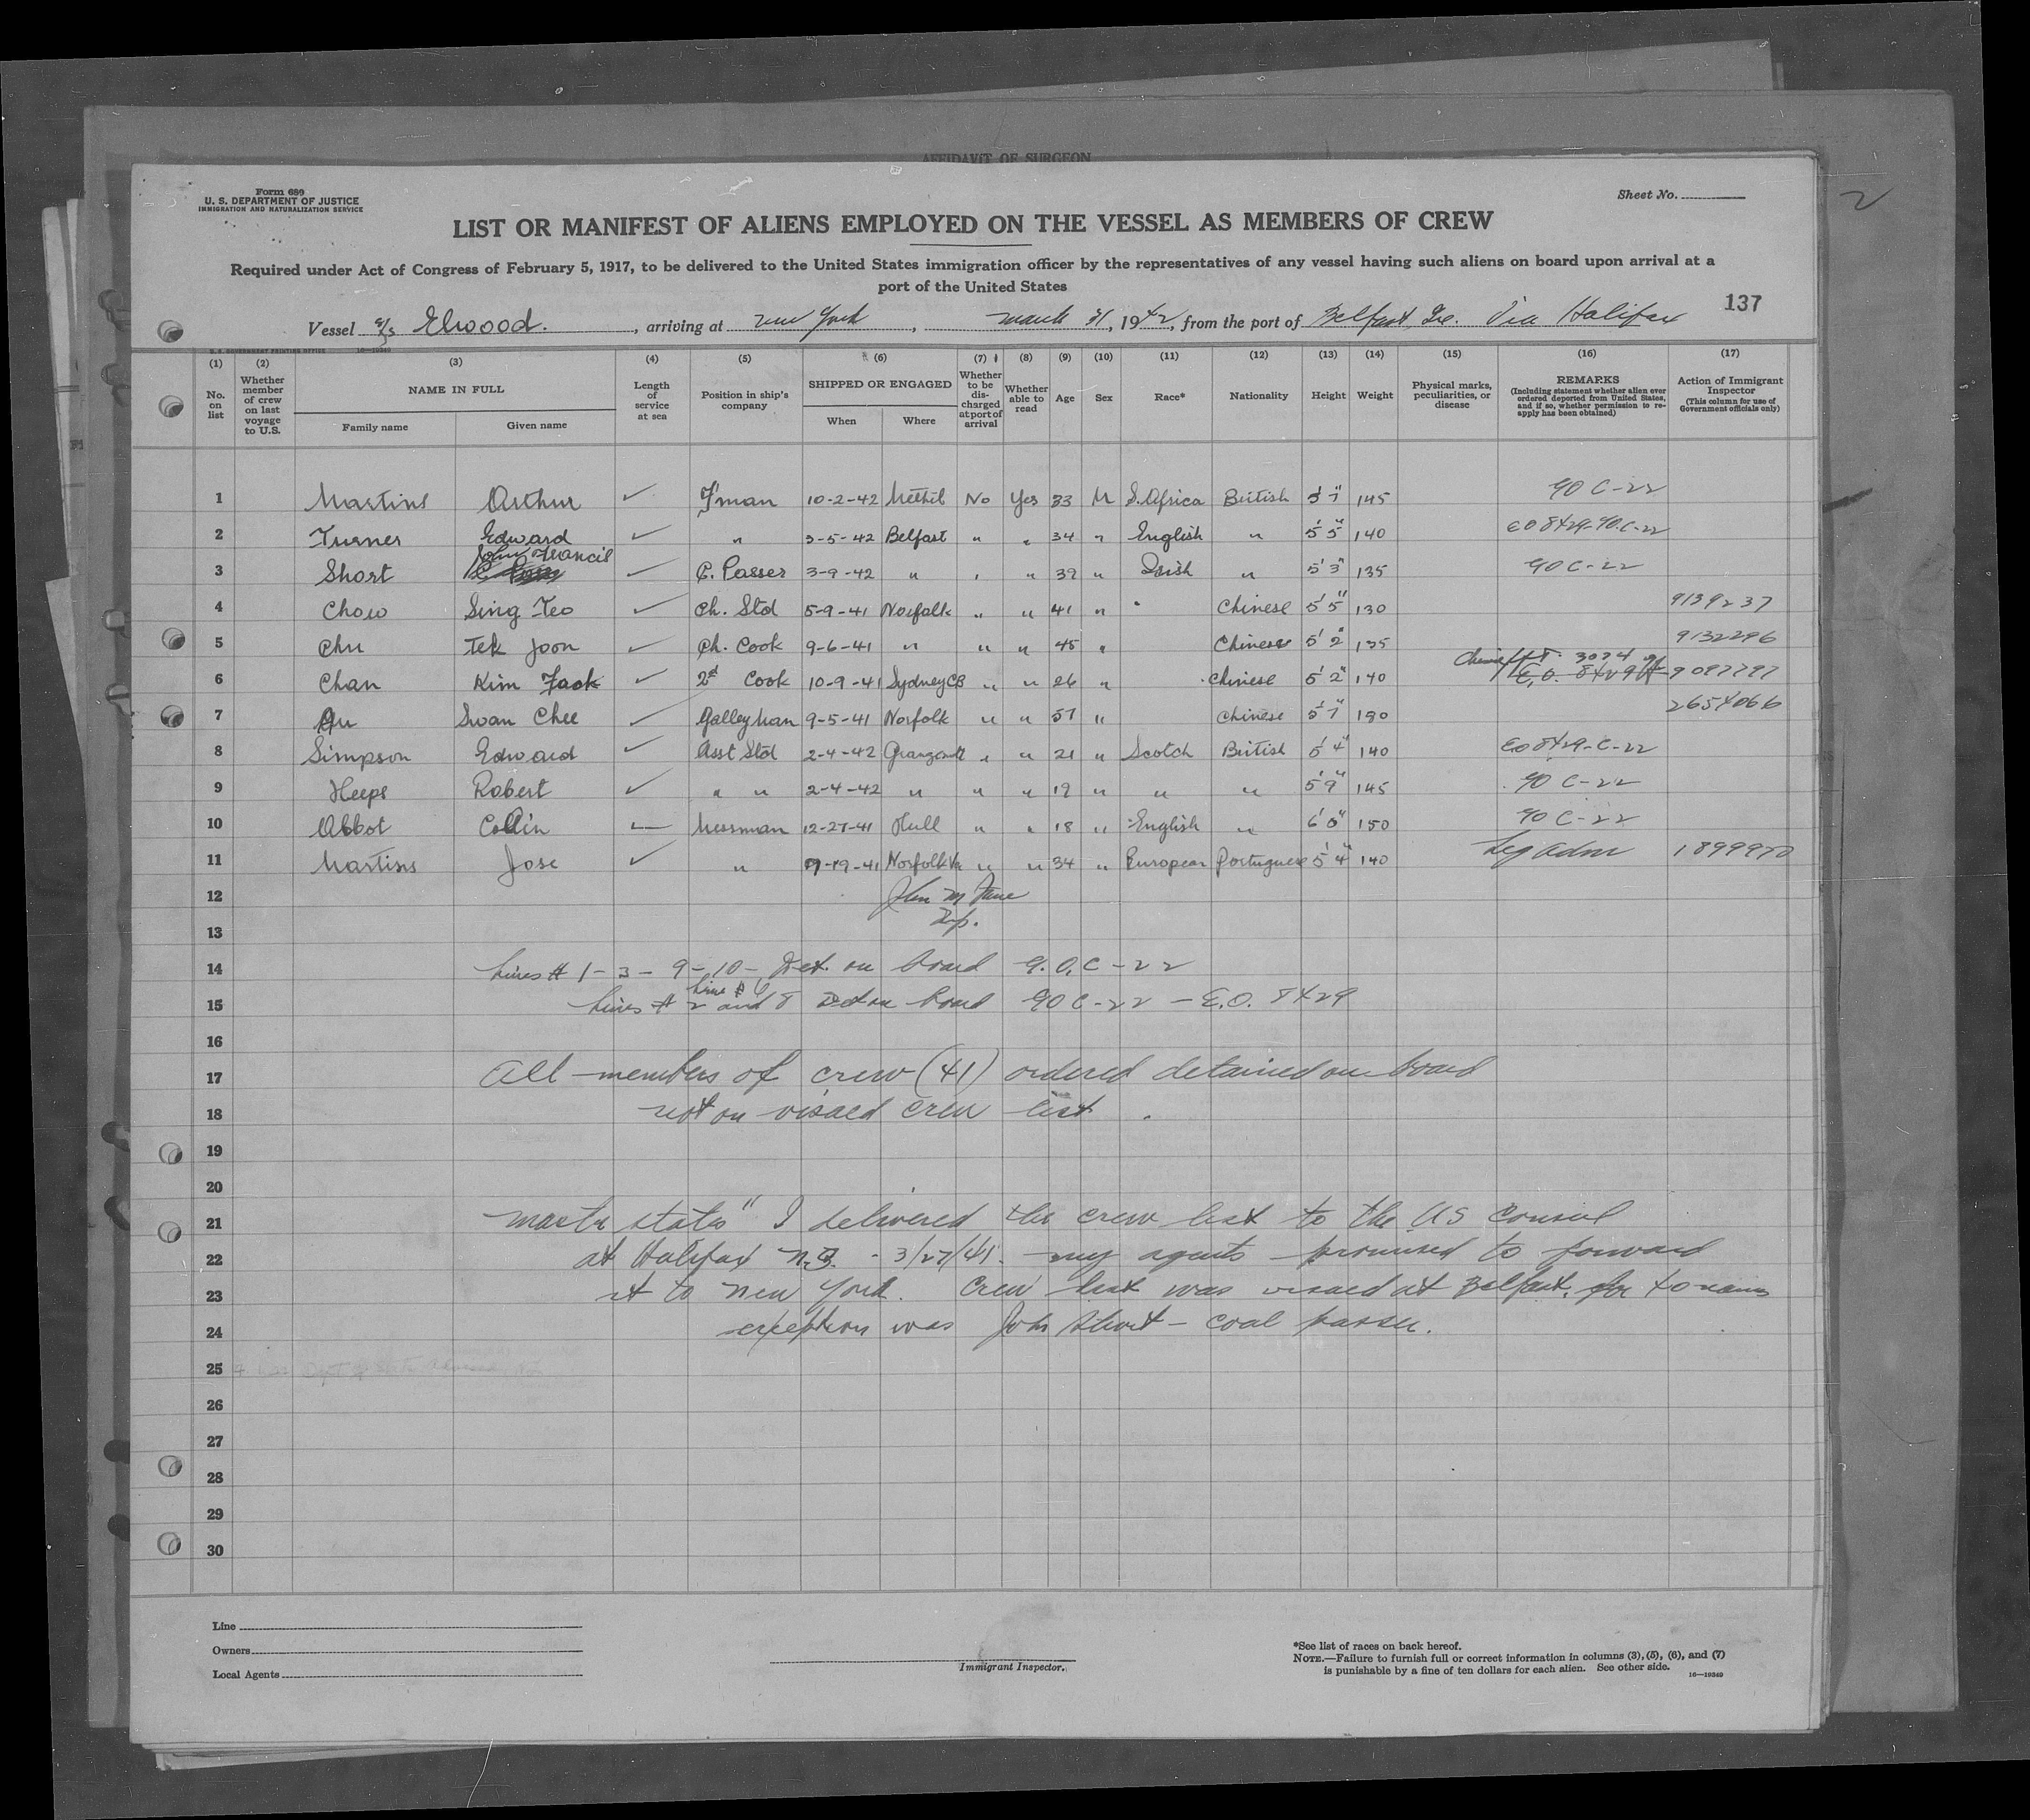 AFFIDAVIT OF SURGEON
2
Form 689
U. S. DEPARTMENT OF JUSTICE
IMMIGRATION AND NATURALIZATION SERVICE
Sheet No.
LIST OR MANIFEST OF ALIENS EMPLOYED ON THE VESSEL AS MEMBERS OF CREW
Required under Act of Congress of February 5, 1917, to be delivered to the United States immigration officer by the representatives of any vessel having such aliens on board upon arrival at a
port of the United States
137
Vessel s/s Elwood. , arriving at New York , March 31, 1942, from the port of Belfast, Ire. Via Halifax
U. S. GOVERNMENT PRINTING OFFICE 16—19340
(1) (2) (3) (4) (5) (6) (7) (8) (9) (10) (11) (12) (13) (14) (15) (16) (17)
No. on list | Whether member of crew on last voyage to U.S. | NAME IN FULL | Family name | Given name | Length of service at sea | Position in ship's company | SHIPPED OR ENGAGED | When | Where | Whether to be discharged at port of arrival | Whether able to read | Age | Sex | Race* | Nationality | Height | Weight | Physical marks, peculiarities, or disease | REMARKS (Including statement whether alien ever ordered deported from United States, and if so, whether permission to reapply has been obtained) | Action of Immigrant Inspector (This column for use of Government officials only)
1 Martins Arthur ✓ F'man 10-2-42 Methil No Yes 33 M S. Africa British 5' 7" 145 GO C-22
2 Turner Edward ✓ " 3-5-42 Belfast " " 34 " English " 5' 5" 140 EO 8429-GO.C-22
John Francis
3 Short ✓ C. Passer 3-9-42 " " " 39 " Irish " 5' 3" 135 GO C-22
4 Chow Sing Teo ✓ Ch. Std 5-9-41 Norfolk " " 41 " " Chinese 5' 5" 130 9139237
5 Chu Tek Joon ✓ Ch. Cook 9-6-41 " " " 45 " Chinese 5' 2" 135 9132296
6 Chan Kim Fook ✓ 2d Cook 10-9-41 Sydney CB " " 26 " Chinese 5' 2" 140 E.O. 8429 9097797
7 Au Swan Chee ✓ Galley Man 9-5-41 Norfolk " " 57 " Chinese 5' 7" 190 2654066
8 Simpson Edward ✓ Asst Std 2-4-42 " " 21 " Scotch British 5' 4" 140 EO 8429-C-22
9 Heeps Robert ✓ " " 2-4-42 " " " 19 " " " 5' 9" 145 GO C-22
10 Abbot Collin ✓ Messman 12-27-41 Hull " " 18 " English " 6' 0" 150 GO C-22
11 Martins Jose ✓ " 9-19-41 Norfolk Va " " 34 " European Portuguese 5' 4" 140 Leg Adm 1899970
12
13
14 Lines # 1-3-9-10- Det. on board G.O. C-22
Line # 6
15 Lines # 2 and 8 Det on board GO C-22 - E.O. 8429
16
17 All members of crew (41) ordered detained on board
18 not on visaed crew list .
19
20
21 Master states " I delivered the crew list to the US Consul
22 at Halifax N.S. - 3/27/41. my agents promised to forward
23 it to New York. Crew list was visaed at Belfast, for 40 names
24 exception was John Short - coal passer.
25
26
27
28
29
30
Line
Owners
Local Agents
Immigrant Inspector.
*See list of races on back hereof.
NOTE.—Failure to furnish full or correct information in columns (3), (5), (6), and (7)
is punishable by a fine of ten dollars for each alien. See other side. 16—19340